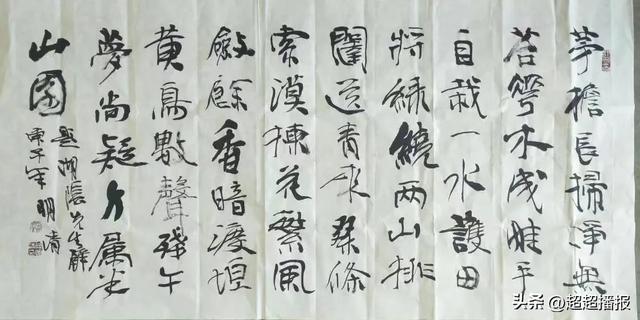 茅檐長掃淨無
苔花木成畦手
自栽一水護田
將綠繞兩山排
闥送青來桑條
索漠楝花繁風
斂餘香暗渡垣
黃鳥數聲殘午
夢尚疑身屬半
山園
題湖陰先生壁
庚子年明清
头条 @超超播报